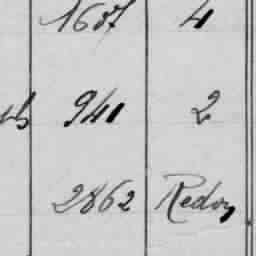 1687 4
941 2
2862 Redon